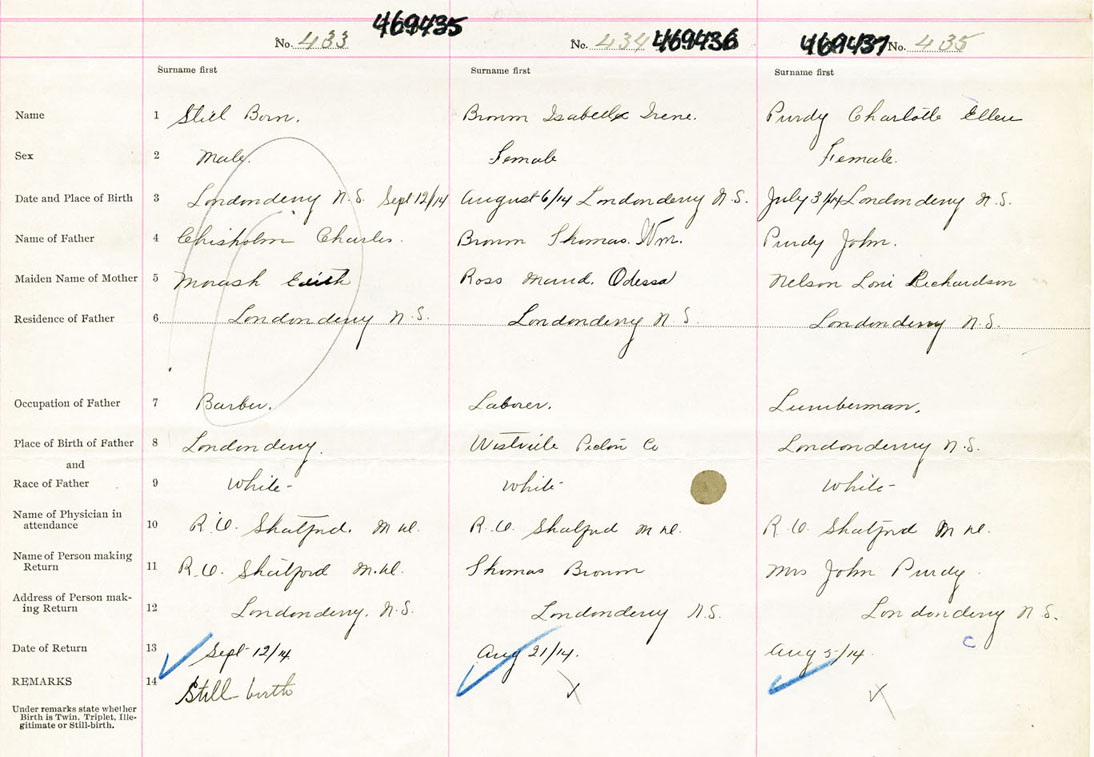 469435 469436 469437
No. 433 No. 434 No. 435
Surname first Surname first Surname first
Name 1 Still Born. Brown Isabella Irene. Purdy Charlotte Ellen
Sex 2 Male. Female Female.
Date and Place of Birth 3 Londonderry N.S. Sept 12/14 August 6/14 Londonderry N.S. July 31/14 Londonderry N.S.
Name of Father 4 Chisholm Charles. Brown Thomas. Wm. Purdy John.
Maiden Name of Mother 5 Morash Edith Ross Maud. Odessa Nelson Richardson
Residence of Father 6 Londonderry N.S. Londonderry N.S. Londonderry N.S.
Occupation of Father 7 Barber. Laborer. Lumberman.
Place of Birth of Father 8 Londonderry. Westville Pictou Co Londonderry N.S.
and
Race of Father 9 White- White- White-
Name of Physician in
attendance 10 Shatford. M.d. Shatford M d. Shatford M d.
Name of Person making
Return 11 Shatford M.d. Thomas Brown Mrs John Purdy.
Address of Person mak-
ing Return 12 Londonderry. N.S. Londonderry N.S. Londonderry N.S.
Date of Return 13 Sept 12/14 Aug 21/14. Aug 5/14 C
REMARKS 14 Still birth X X
Under remarks state whether
Birth is Twin, Triplet, Ille-
gitimate or Still-birth.